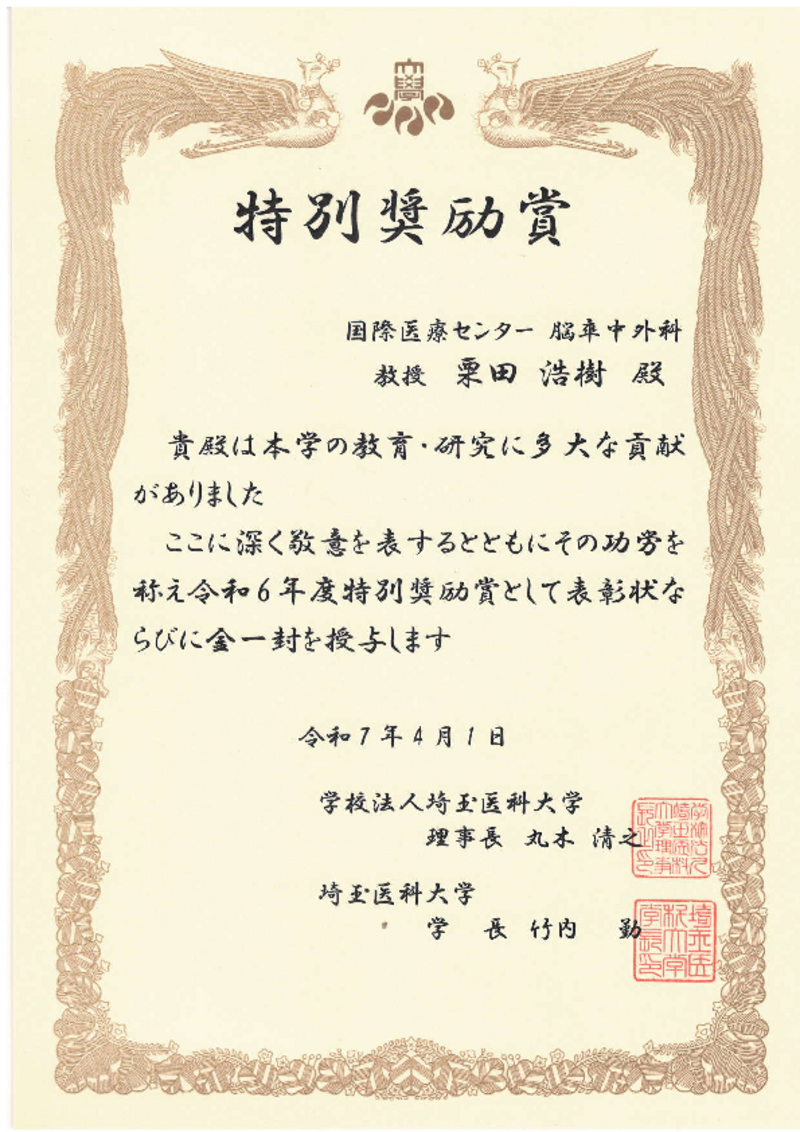 大學
特別奨励賞
国際医療センター 脳卒中外科
教授 栗田 浩樹 殿
貴殿は本学の教育・研究に多大な貢献
がありました
ここに深く敬意を表するとともにその功労を
称え令和6年度特別奨励賞として表彰状な
らびに金一封を授与します
令和7年4月1日
学校法人埼玉医科大学
理事長 丸木 清之
埼玉医科大学
学 長 竹内 勤